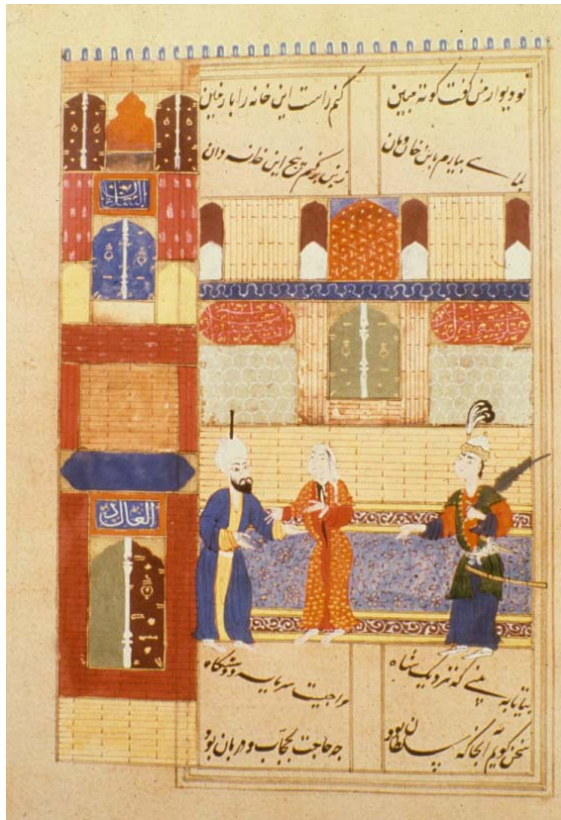 دیوار من گفت کوته مبین کنم راست این خانه را با زمین
بیارم باین خان و مان ز بن بر کنم بیخ این خاندان
السلطان
العادل
بیا تا به بینی که نزدیک شاه مرا چیست سرمایه و دستگاه
سخن گویم آنجا که سلطان بود چه حاجت بحجاب و دربان بود